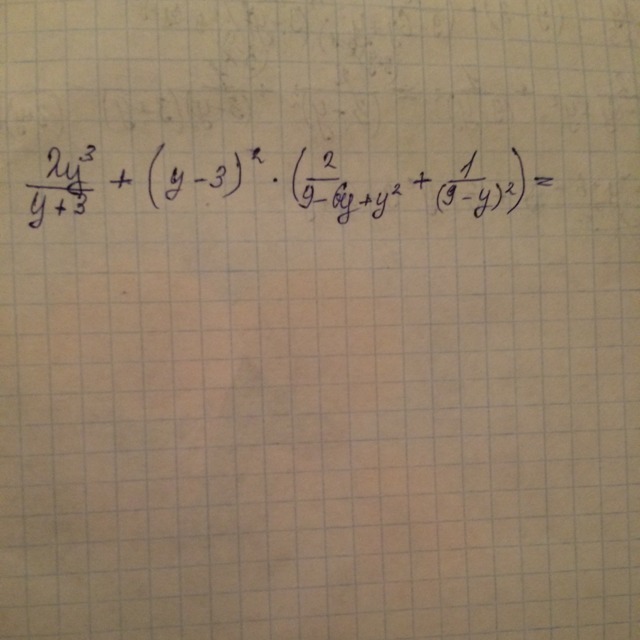 2y³/(y+3) + (y-3)² · (2/(9-6y+y²) + 1/(9-y)²) =